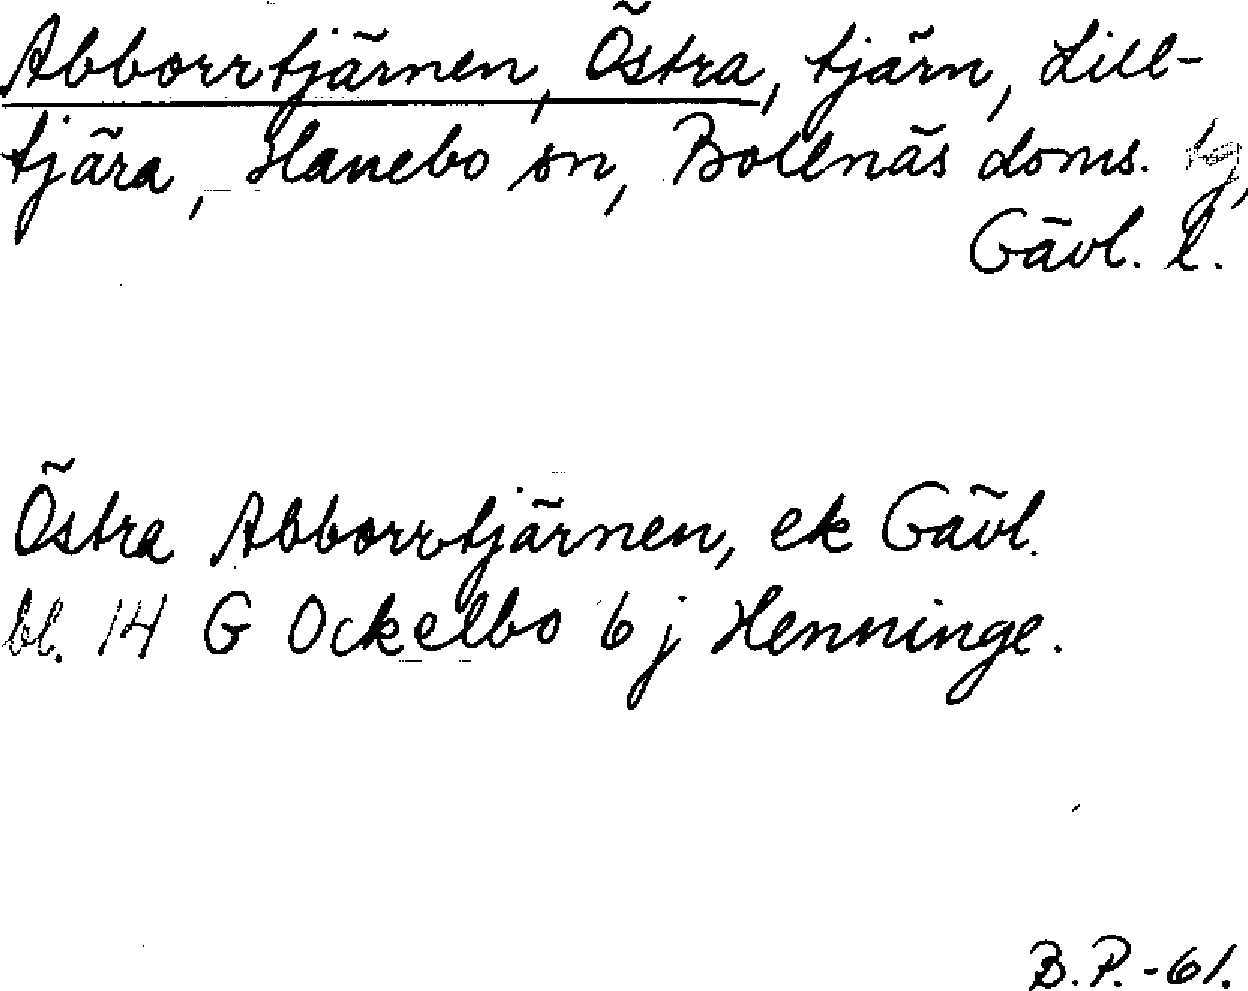 Abborrtjärnen, Östra, tjärn, Lill-
tjära, Hanebo sn, Bollnäs doms. tg,
Gävl. l.
Östra Abborrtjärnen, ek Gävl.
bl. 14 G Ockelbo 6 j Henninge.
B.P.-61.